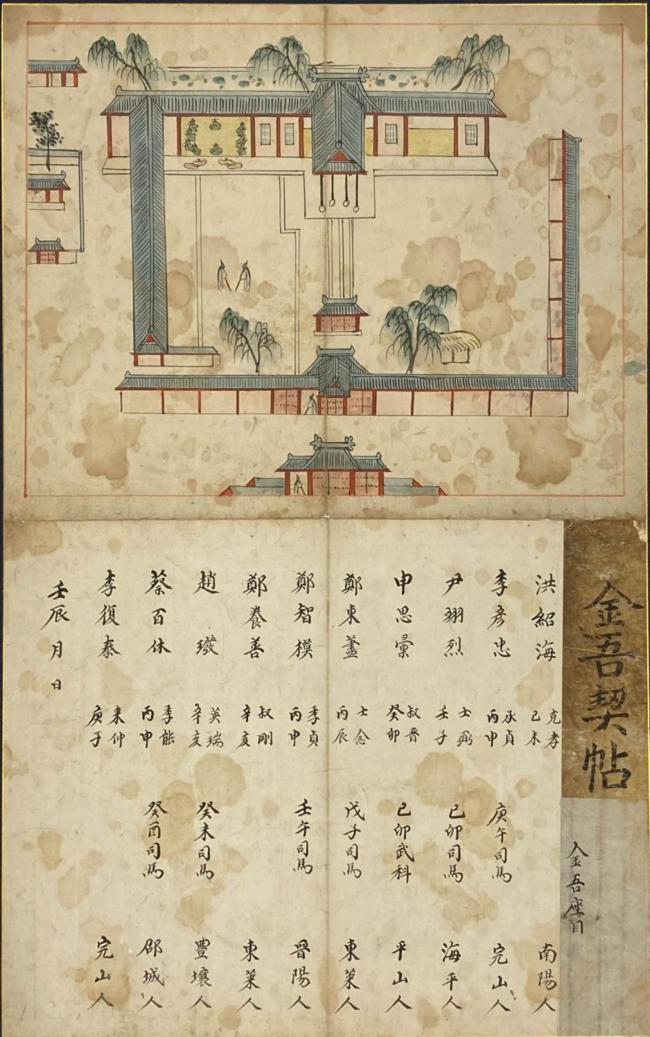 金吾契帖
入金吾座目
洪紹海 克孝 己未 南陽人
李彦忠 貞 丙申 庚午司馬 完山人
尹翊烈 士弼 壬子 己卯司馬 海平人
申思彙 叔晋 癸卯 己卯武科 平山人
鄭東 士念 丙辰 戊子司馬 東萊人
鄭智模 季貞 丙申 壬午司馬 晋陽人
鄭養善 叔剛 辛亥 東萊人
趙 英瑞 辛亥 癸未司馬 豊壤人
蔡百休 季能 丙申 癸酉司馬 邵城人
李復泰 来仲 庚子 完山人
壬辰 月 日